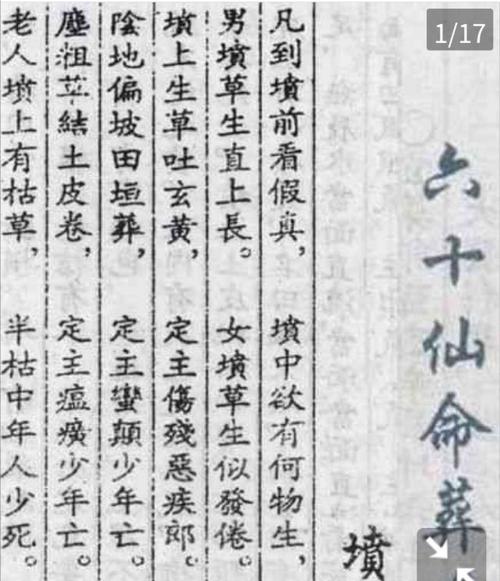 1/17
六十仙命葬
墳
凡到墳前看假真，墳中欲有何物生，
男墳草生直上長。女墳草生似發倦。
墳上生草吐玄黃，定主傷殘惡疾郎。
陰地偏坡田垣葬，定主蠻顛少年亡。
塵粗草結土皮卷，定主瘟癀少年亡。
老人墳上有枯草，半枯中年人少死。